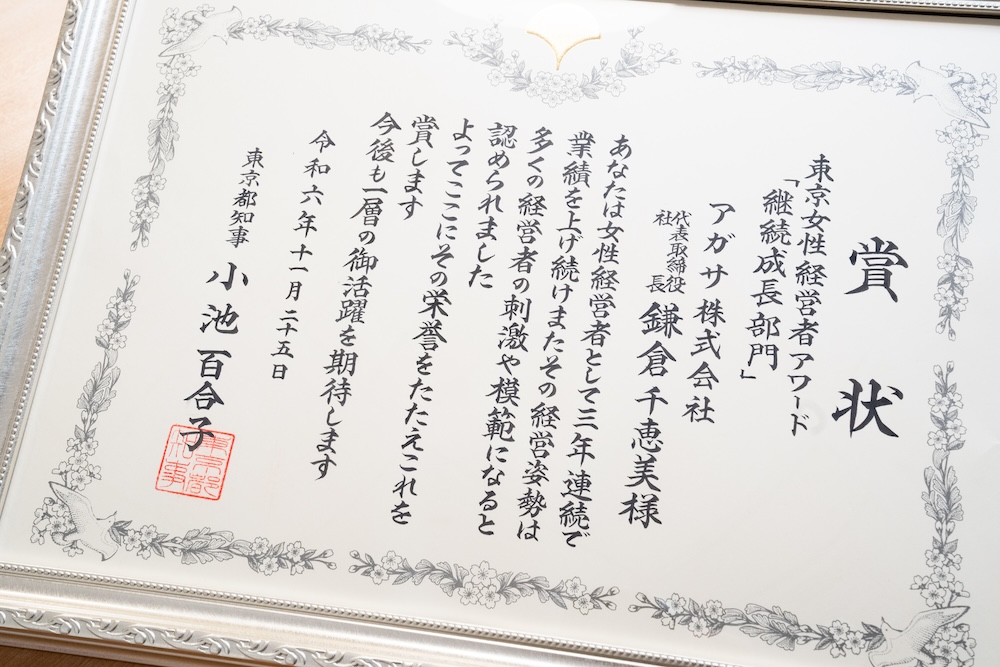 賞状
東京女性経営者アワード
「継続成長部門」
アガサ株式会社
代表取締役
社長
鎌倉千恵美様
あなたは女性経営者として三年連続で
業績を上げ続けまたその経営姿勢は
多くの経営者の刺激や模範になると
認められました
よってここにその栄誉をたたえこれを
賞します
今後も一層の御活躍を期待します
令和六年十一月二十五日
東京都知事 小池百合子
東京都
知事